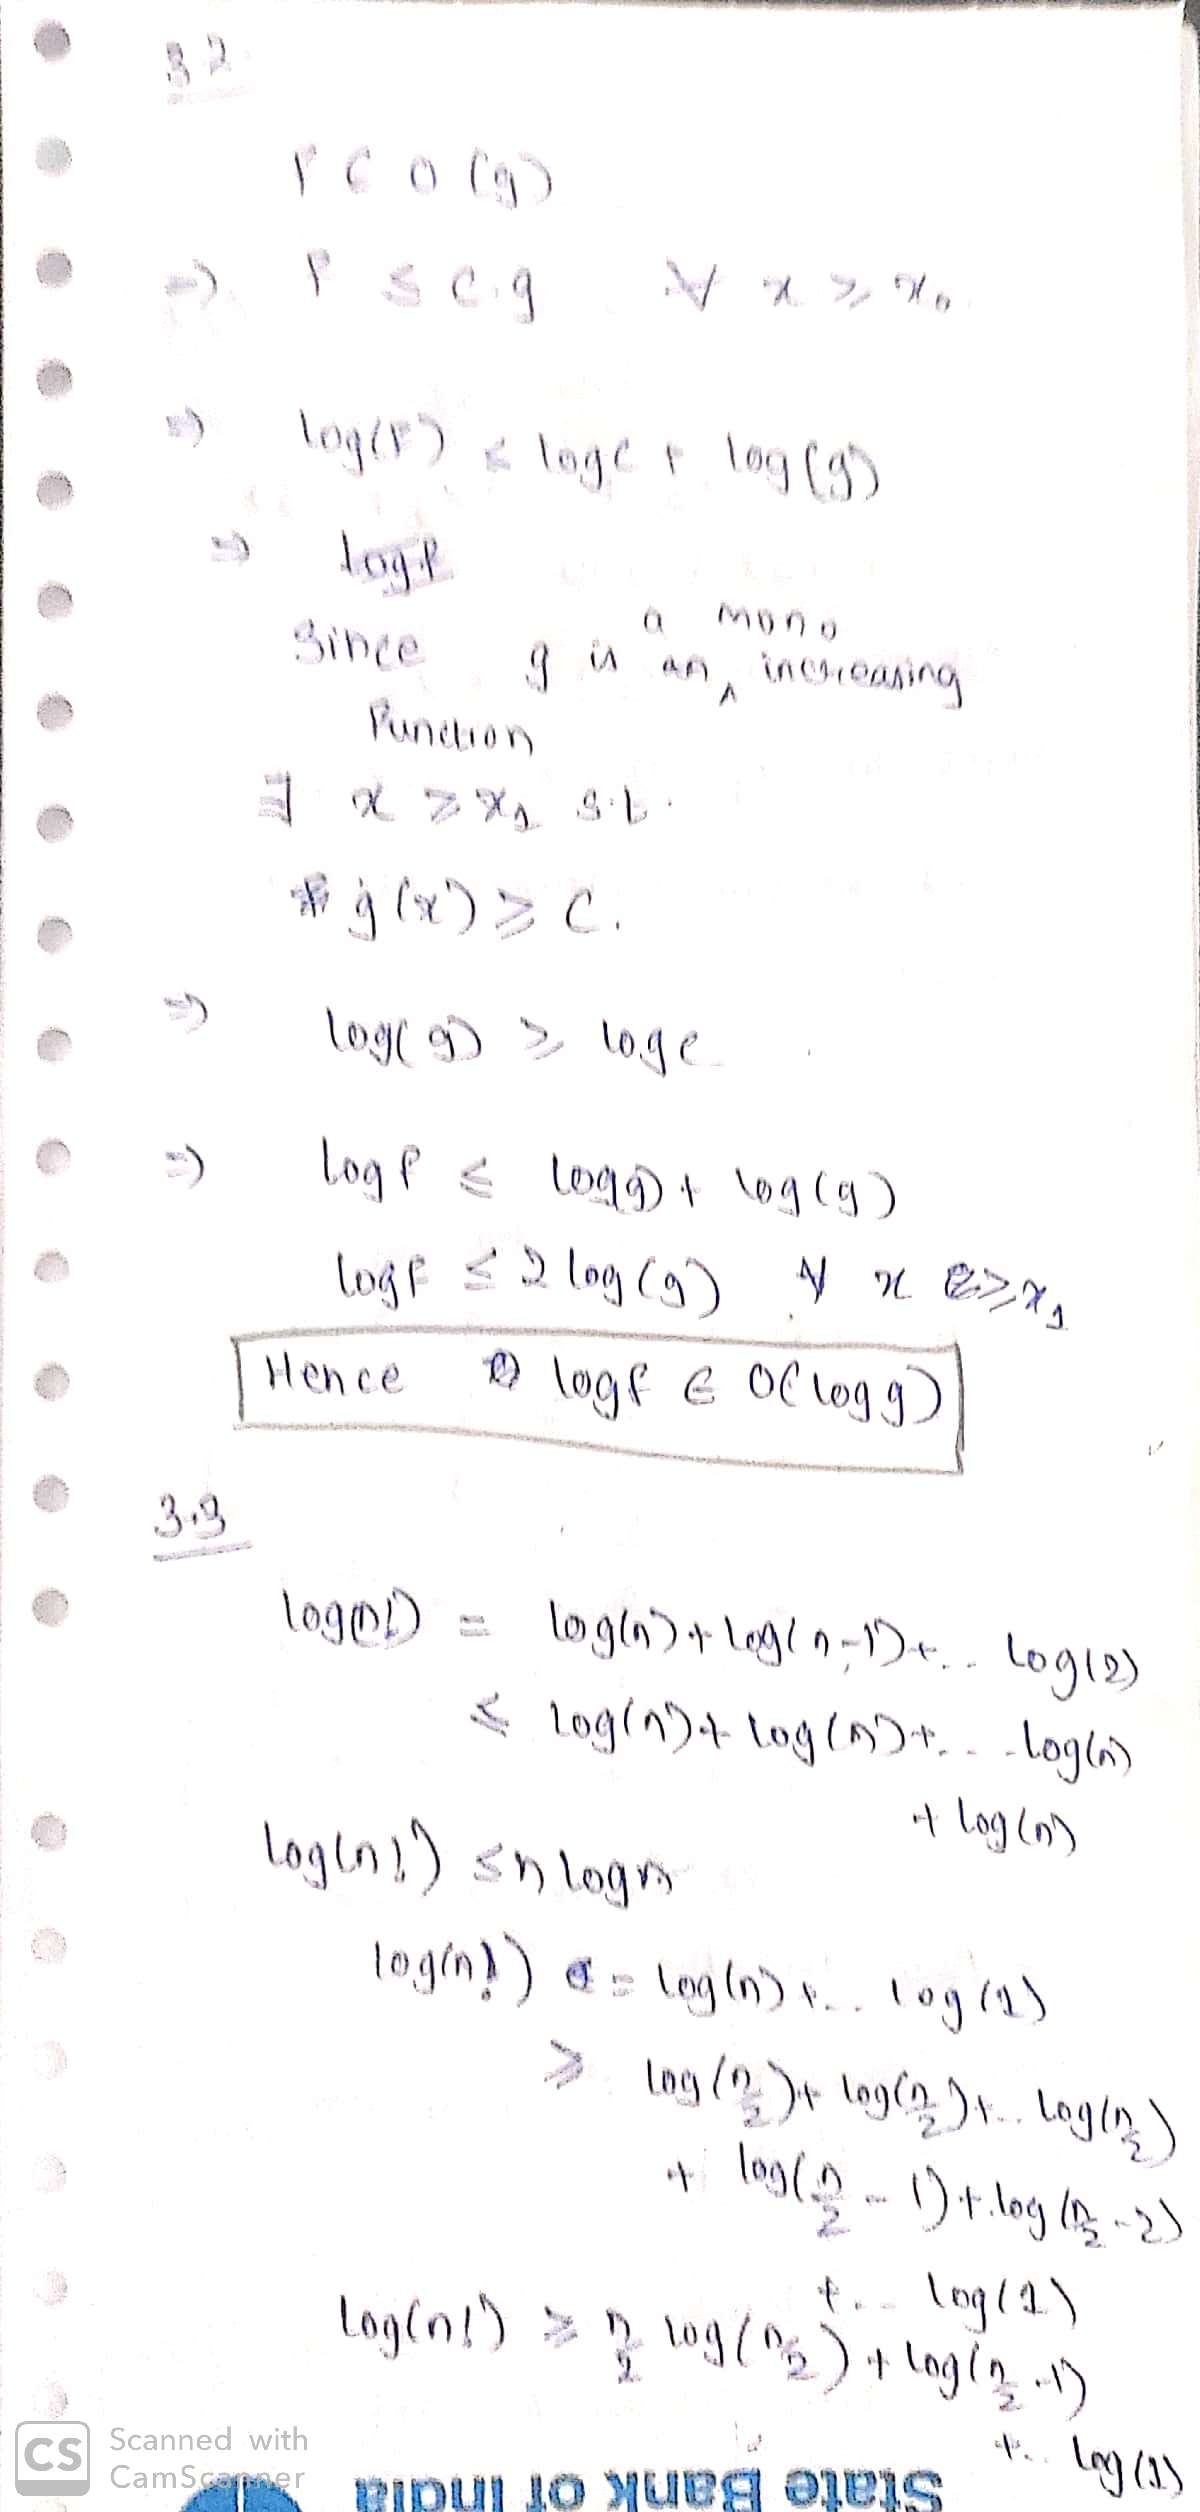 3.2
f ∈ O(g)
⇒ f ≤ c.g ∀ x ≥ x₀
⇒ log(f) ≤ log c + log(g)
⇒ log f
Since g is a mono increasing
function
∃ x ≥ x₁ s.t.
g(x) ≥ c.
⇒ log(g) ≥ log c
⇒ log f ≤ log(g) + log(g)
log f ≤ 2 log(g) ∀ x ≥ x₁
Hence log f ∈ O(log g)
3.3
log(n!) = log(n) + log(n-1) + .. log(2)
≤ log(n) + log(n) + ... log(n)
+ log(n)
log(n!) ≤ n log n
log(n!) = log(n) + .. log(1)
≥ log(n/2) + log(n/2) + .. log(n/2)
+ log(n/2 - 1) + log(n/2 - 2)
+ .. log(1)
log(n!) ≥ n/2 log(n/2) + log(n/2 - 1)
+ .. log(1)
CS Scanned with
CamScanner
State Bank of India